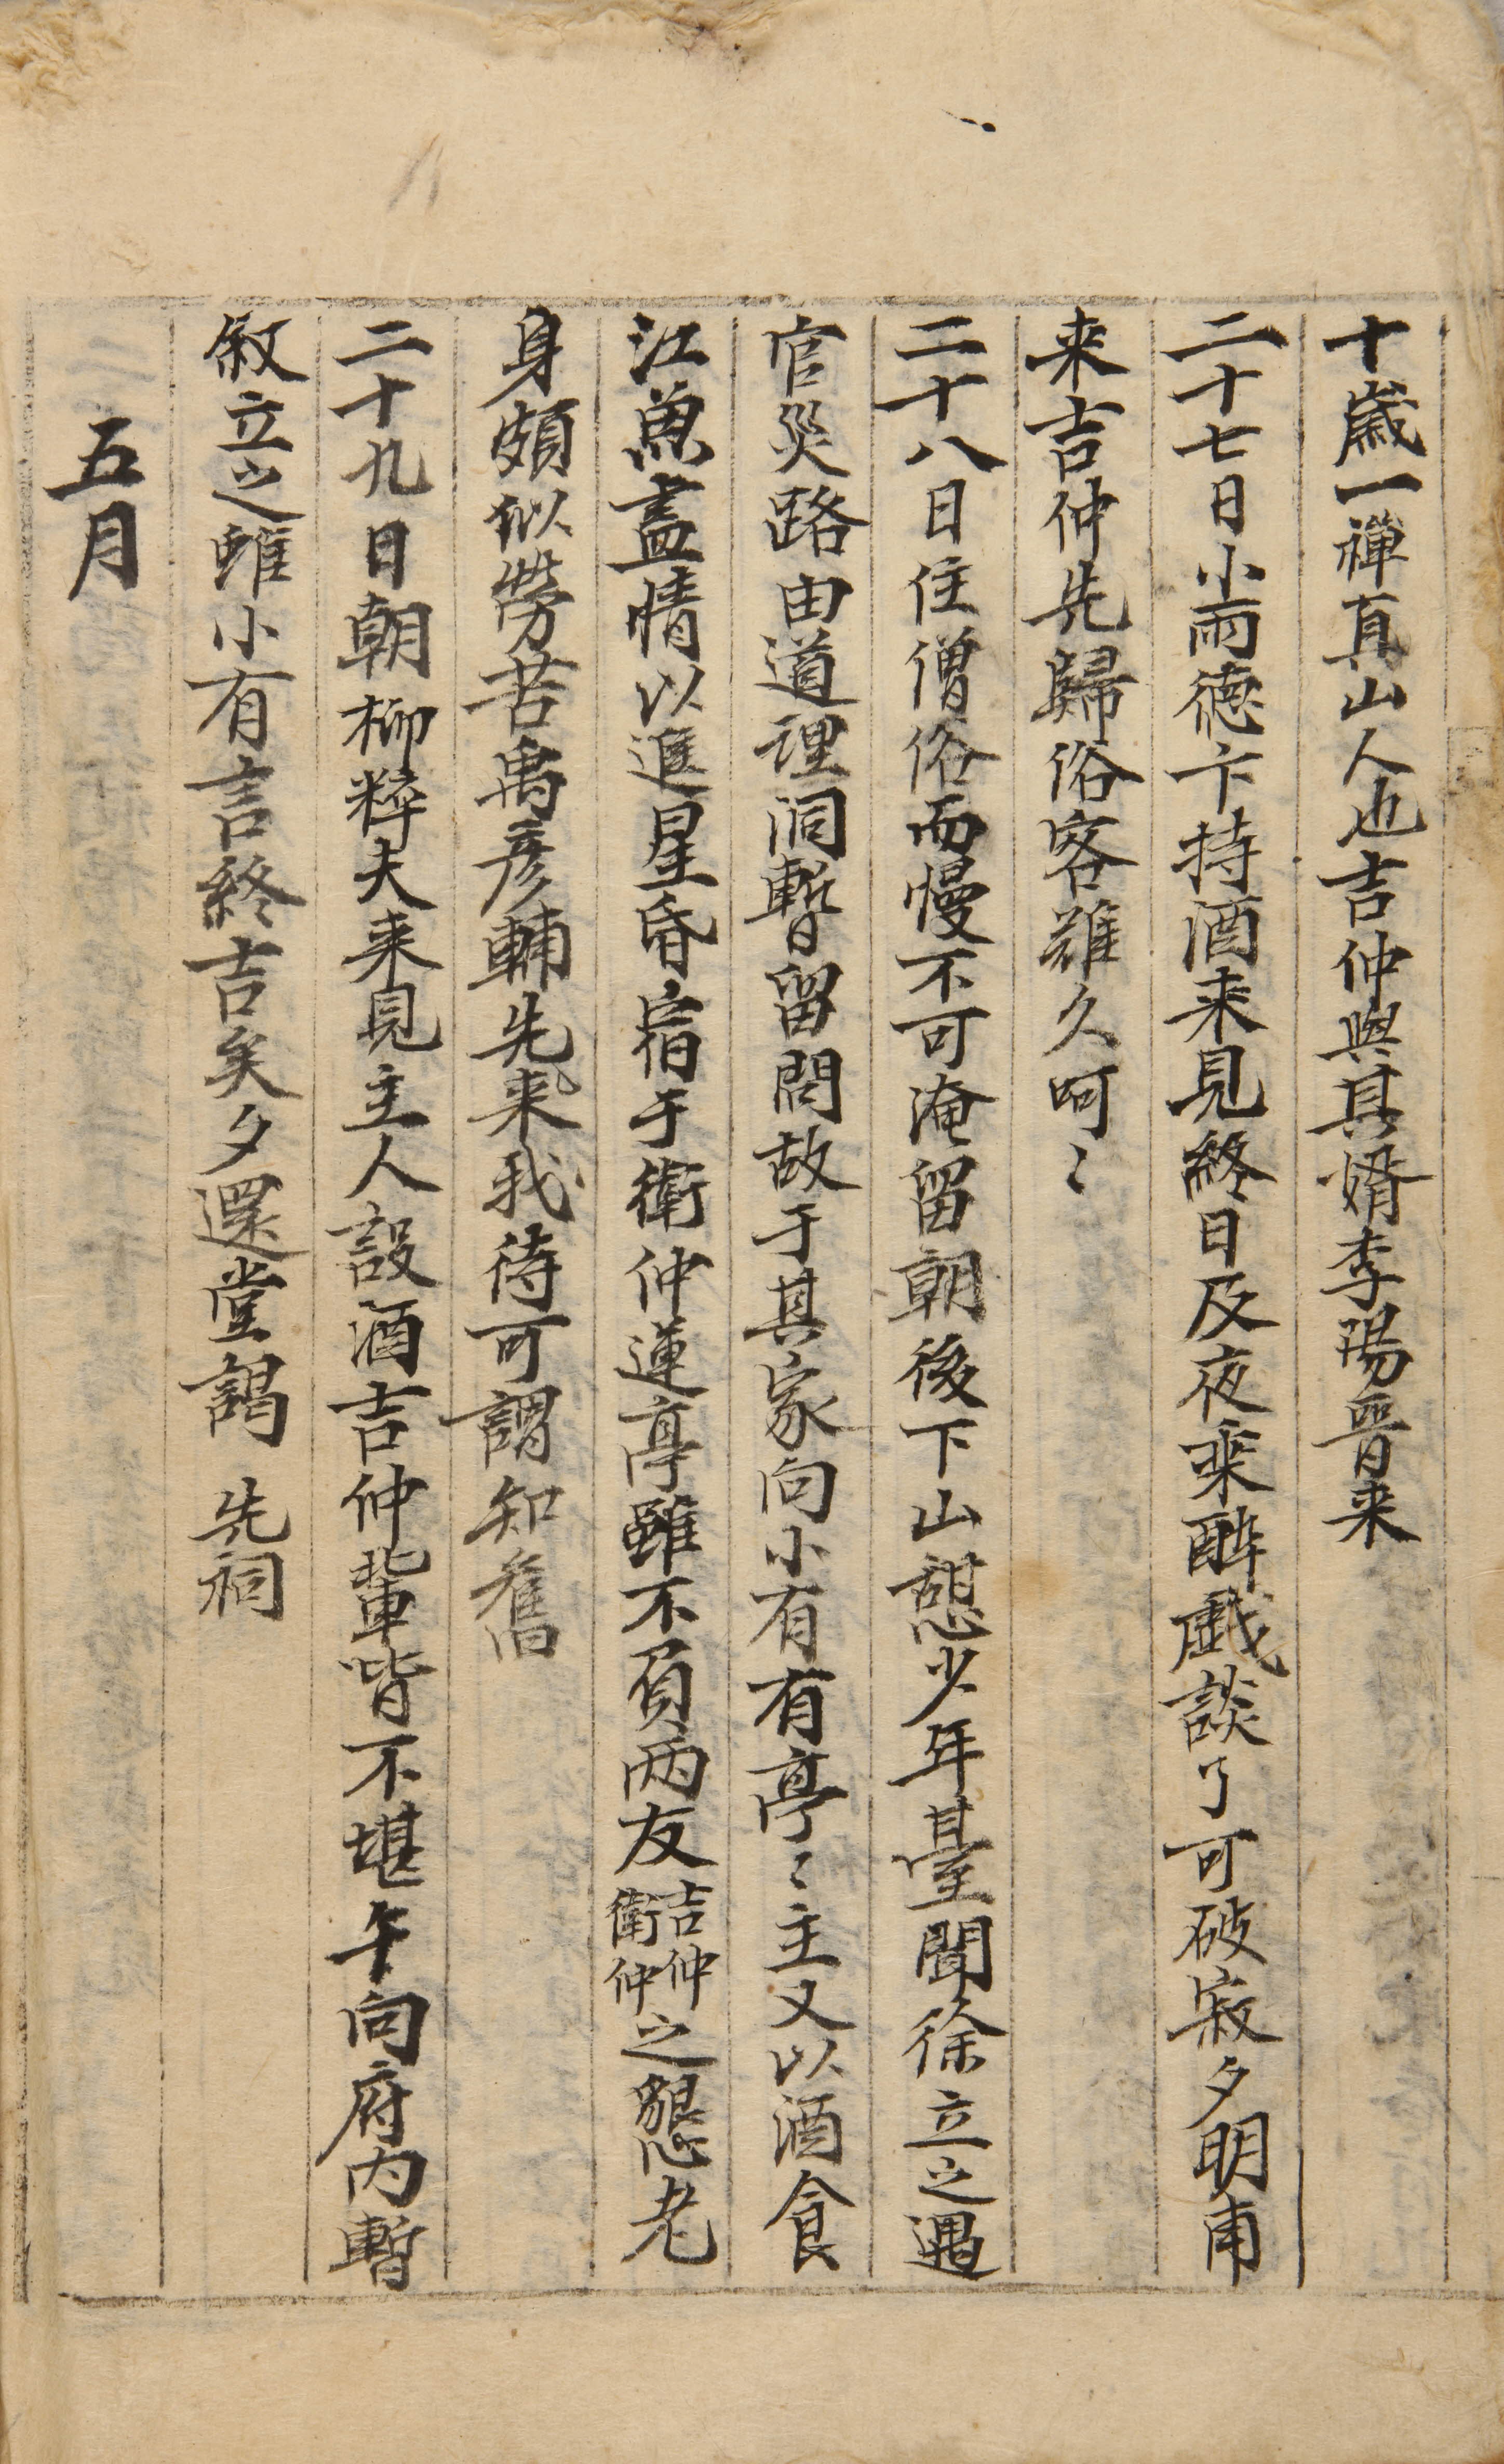 十歲一禪真山人也吉仲與其婿李陽晉来
二十七日小雨德卞持酒来見終日及夜乘醉戱談了可破寂夕明甫
来吉仲先歸俗客難久呵〻
二十八日住僧俗而慢不可淹留朝後下山憩少年臺聞徐立之遇
官災路由道理洞暫留問故于其家向小有有亭〻主又以酒食
江魚盡情以進星昏宿于衛仲蓮亭雖不負兩友吉仲衛仲之懇老
身頗似勞苦禹彦輔先来我待可謂知舊
二十九日朝柳粹夫来見主人設酒吉仲輩皆不堪午向府内暫
敍立之雖小有言終吉矣夕還堂謁 先祠
五月